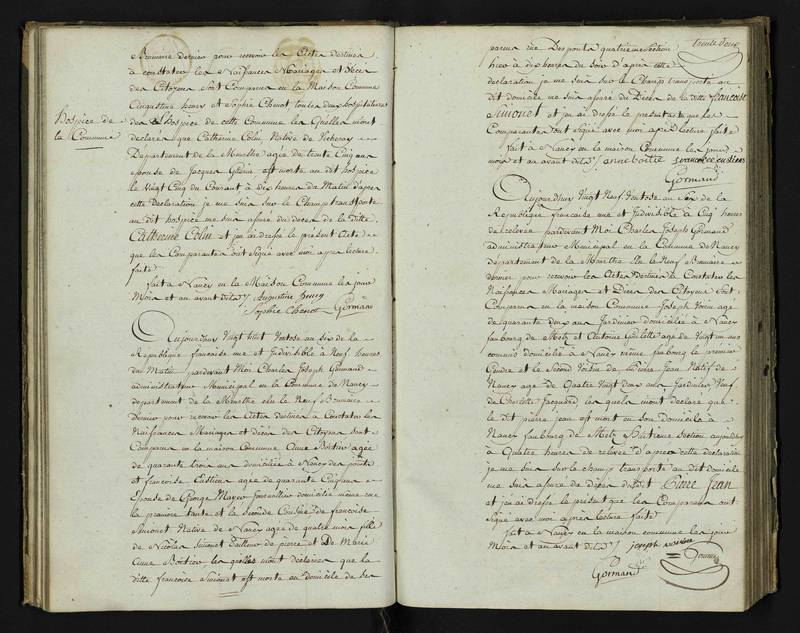 Brumaire dernier pour recevoir les Actes destinés
à constater les Naissances Mariages et Décès
des Citoyens sont Comparus en la Maison Commune
Augustine henry et Sophie Chenot toutes deux hospitalières
hospice de
la Commune
de hospice de cette Commune les Quelles m'ont
déclarés que Catherine Colin Native de
Département de la Meurthe agée de trente Cinq ans
épouse de Jacques est morte au dit hospice
le Vingt Cinq du Courant à dix heures du Matin d'après
cette Déclaration je me suis sur le Champ transporté
au dit hospice me suis assuré du décès de la ditte
Catherine Colin et j'ai dressé le présent Acte
que les Comparantes ont Signé avec moi après lecture
faite
fait à Nancy en la Maison Commune les jour
Mois et an avant dits Augustine henry
Sophie Chenot Gormand
Aujourd'huy Vingt huit Ventose an six de la
République française une et Indivisible à Neuf heures
du Matin pardevant Moi Charles Joseph Gormand
administrateur Municipal en la Commune de Nancy
département de la Meurthe élu le Neuf Brumaire
Dernier pour recevoir les Actes destinés à Constater les
Naissances Mariages et décès des Citoyens sont
Comparus en la maison Commune Anne agée
de quarante trois ans domiciliée à Nancy
et francoise agée de quarante Cinq ans
Epouse de George domiciliée même rue
la première tante et la Seconde Cousine de francoise
Simonet Native de Nancy agée de quatre mois fille
de Nicolas Simonet tailleur de pierre et De Marie
Anne les quelles m'ont déclarées que la
ditte francoise Simonet est morte au domicile de ses
trente Deux
parens rue Des ponts quatrieme Section
hier à dix heures du soir D'après cette
déclaration je me suis sur le Champ transporté au
dit domicile me suis assuré du Décès de la ditte françoise
Simonet et j'ai dressé le présent acte que les
Comparantes ont Signé avec moi après lecture faite
fait à Nancy en la maison Commune les jour
mois et an avant dits anne
Gormand
Aujourd'huy Vingt Neuf Ventose an Six de la
République francaise une et Indivisible à Cinq heures
de relevée pardevant Moi Charles Joseph Gormand
administrateur Municipal en la Commune de Nancy
département de la Meurthe élu le Neuf Brumaire
dernier pour recevoir les Actes destinés à Constater les
Naissances Mariages et Décès des Citoyens sont
Comparus en la maison Commune Joseph agé
de quarante deux ans Jardinier domicilié à Nancy
faubourg de Metz et Antoine agé de Vingt un ans
domicilié à Nancy même faubourg le premier
Gendre et le Second Voisin de Pierre Jean Natif de
Nancy agé de Quatre Vingt Deux ans Jardinier Veuf
de Charlotte Jacquard les quels m'ont déclaré que
le dit pierre jean est mort en son domicile à
Nancy faubourg de Metz huitieme section aujourd'huy
à Quatre heures de relevée d'après cette déclaration
je me suis sur le champ transporté au dit domicile
me suis assuré du décès du dit Pierre Jean
et j'ai dressé le présent que les Comparans ont
signé avec moi après lecture faite
fait à Nancy en la maison commune les jour
Mois et an avant dits joseph
Gormand